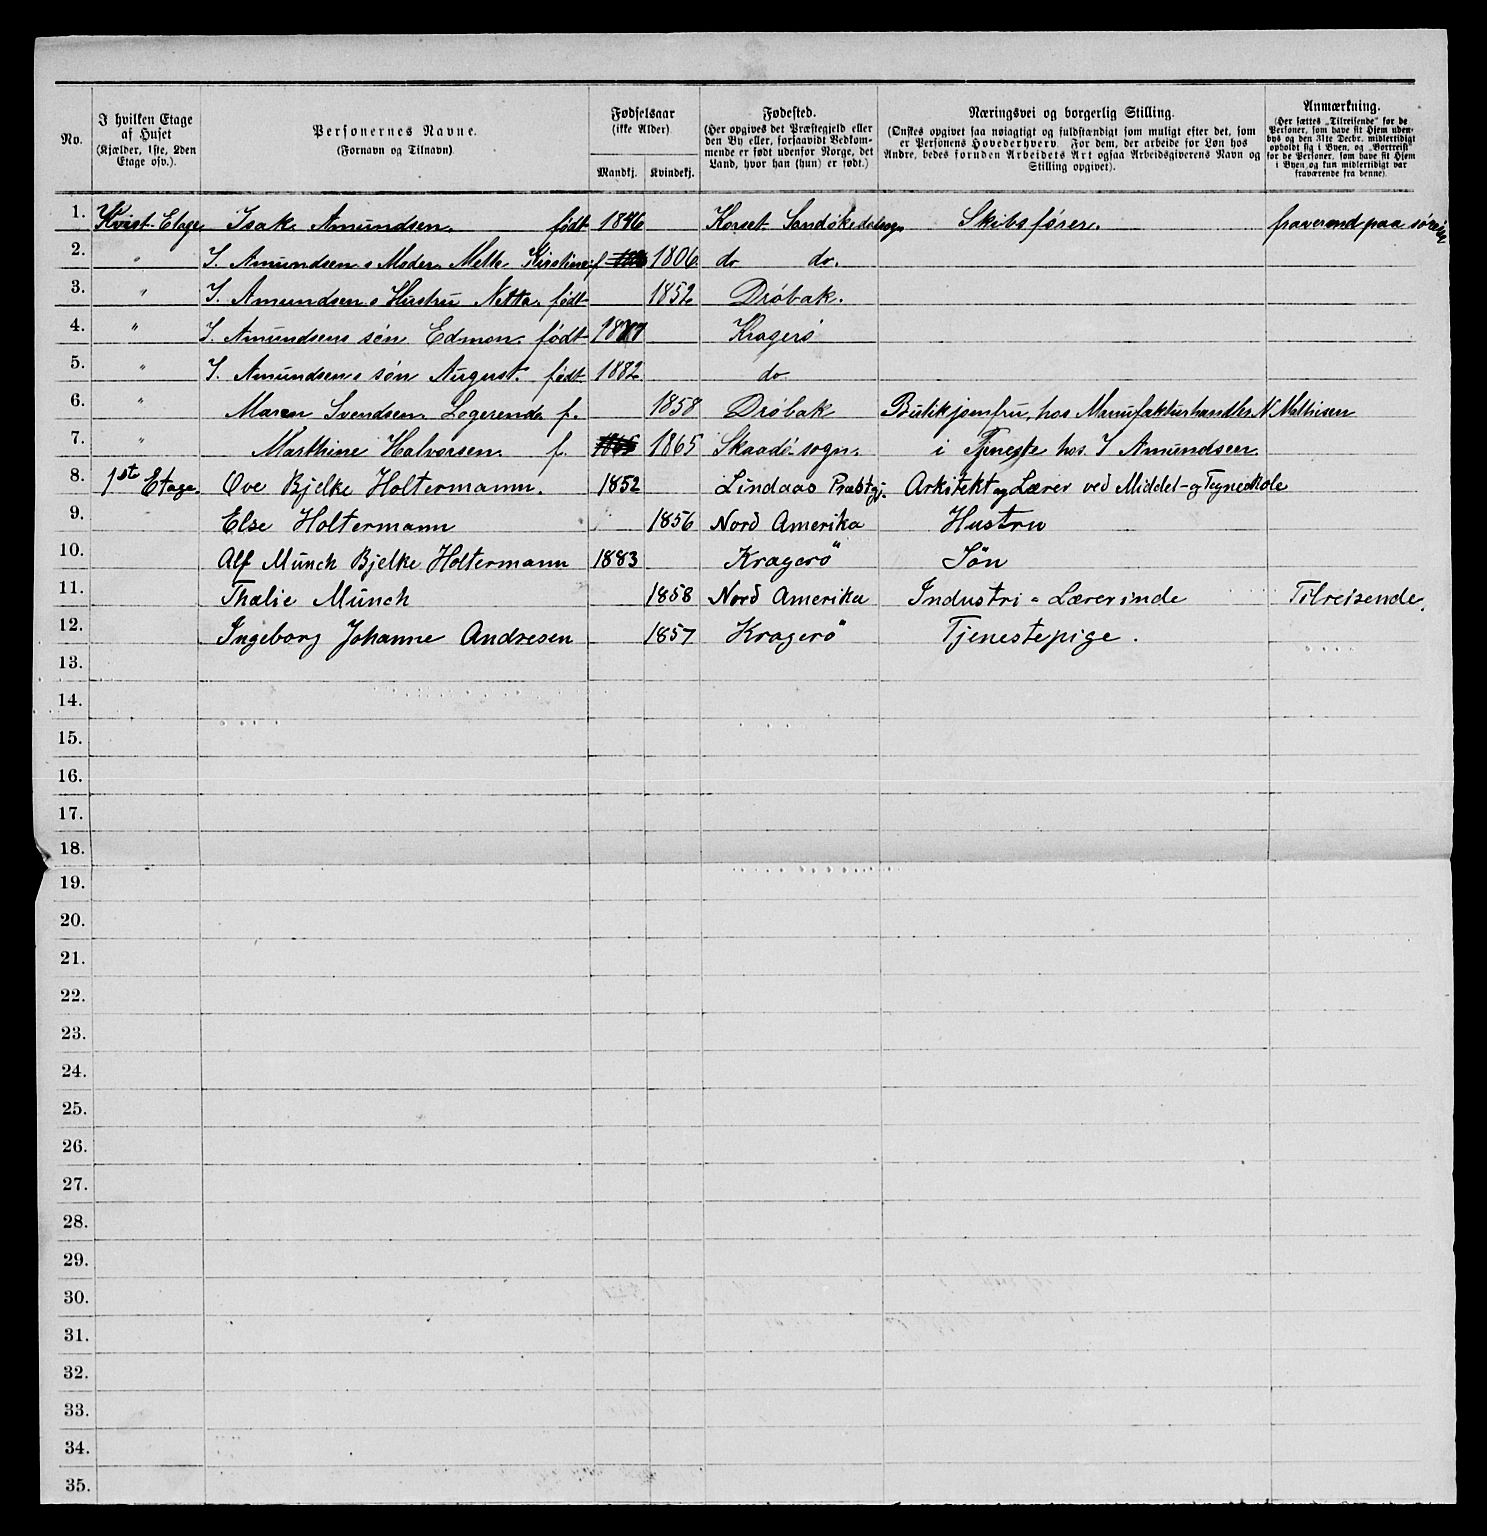 No.
I hvilken Etage af Huset (Kjælder, 1ste, 2den Etage osv.).
Personernes Navne. (Fornavn og Tilnavn).
Fødselsaar (ikke Alder). Mandkj. Kvindekj.
Fødested. (Her opgives det Præstegjeld eller den By eller, forsaavidt Vedkommende er født udenfor Norge, det Land, hvor han (hun) er født.)
Næringsvei og borgerlig Stilling. (Ønskes opgivet saa nøiagtigt og fuldstændigt som muligt efter det, som er Personens Hovederhverv. For dem, der arbeide for Løn hos Andre, bedes foruden Arbeidets Art ogsaa Arbeidsgiverens Navn og Stilling opgivet).
Anmærkning. (Her sættes „Tilreisende“ for de Personer, som have sit Hjem udenbys og den 31te Decbr. midlertidigt opholdt sig i Byen, og „Bortreist“ for de Personer, som have sit Hjem i Byen og kun midlertidigt var fraværende fra denne).
1. Kvist-Etage Isak Amundsen. født 1846 Korset Sandøkedalsogn Skibsfører. fraverend paa
2. " I. Amundsens Moder Mette Kirstine f 1806 do do.
3. " I. Amundsens Hustru Netta. født 1852. Dröbak.
4. " I. Amundsens sön Edmon. født 1877 Kragerö
5. " I. Amundsens sön August. født 1882. do
6. " Maren Svendsen. Logerende f. 1858 Dröbak Butikjomfru. hos Manufakturhandler N Mathisen
7. " Marthine Halvorsen. f. 1865 Skaadö sogn. i Tjeneste hos. I Amundsen.
8. 1st Etage. Ove Bjelke Holtermann. 1852 Lindaas Præstgj. Arkitekt og Lærer ved Middel- og Tegneskole
9. Else Holtermann 1856 Nord Amerika Hustru
10. Alf Münch Bjelke Holtermann 1883 Kragerö Søn
11. Thalie Münch 1858 Nord Amerika Industri-Lærerinde Tilreisende.
12. Ingeborg Johanne Andresen 1857 Kragerö Tjenestepige.
13.
14.
15.
16.
17.
18.
19.
20.
21.
22.
23.
24.
25.
26.
27.
28.
29.
30.
31.
32.
33.
34.
35.